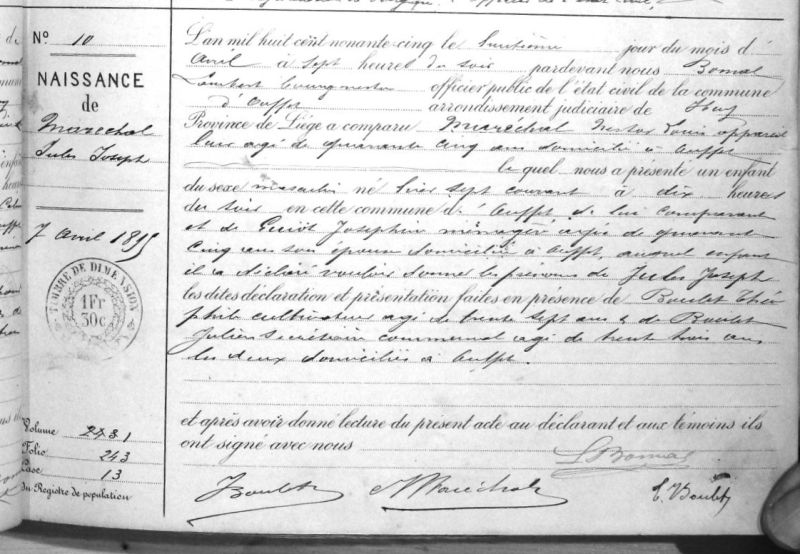 N° 10
NAISSANCE
de
Maréchal
Jules Joseph
7 avril 1895
TIMBRE DE DIMENSION
1 Fr
30c
Volume 2
Folio 243
Case 13
du Registre de population
L'an mil huit cent nonante-cinq le huitième jour du mois d'
avril à sept heures du soir pardevant nous Bomal
Lambert bourgmestre officier public de l'état civil de la commune
d'Ouffet arrondissement judiciaire de Huy
Province de Liége a comparu Maréchal Nestor Louis appareil
leur agé de quarante cinq ans domicilié à Ouffet
le quel nous a présenté un enfant
du sexe masculin né hier sept courant à dix heures
du soir en cette commune d'Ouffet de lui comparant
et de Joséphine ménagère agée de quarante
cinq ans son épouse domiciliée à Ouffet, auquel enfant
il a déclaré vouloir donner les prénoms de Jules Joseph
les dites déclaration et présentation faites en présence de Boulet Théo
phile cultivateur agé de trente sept ans & de Boulet
Julien secrétaire communal agé de trente trois ans
les deux domiciliés à Ouffet.
et après avoir donné lecture du présent acte au déclarant et aux témoins ils
ont signé avec nous
L Bomal
J Boulet N Maréchal T. Boulet